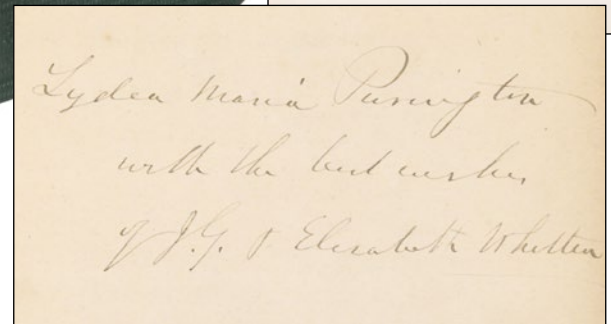 Lydia Maria Purington
with the best wishes
of J.G. & Elizabeth Whittier